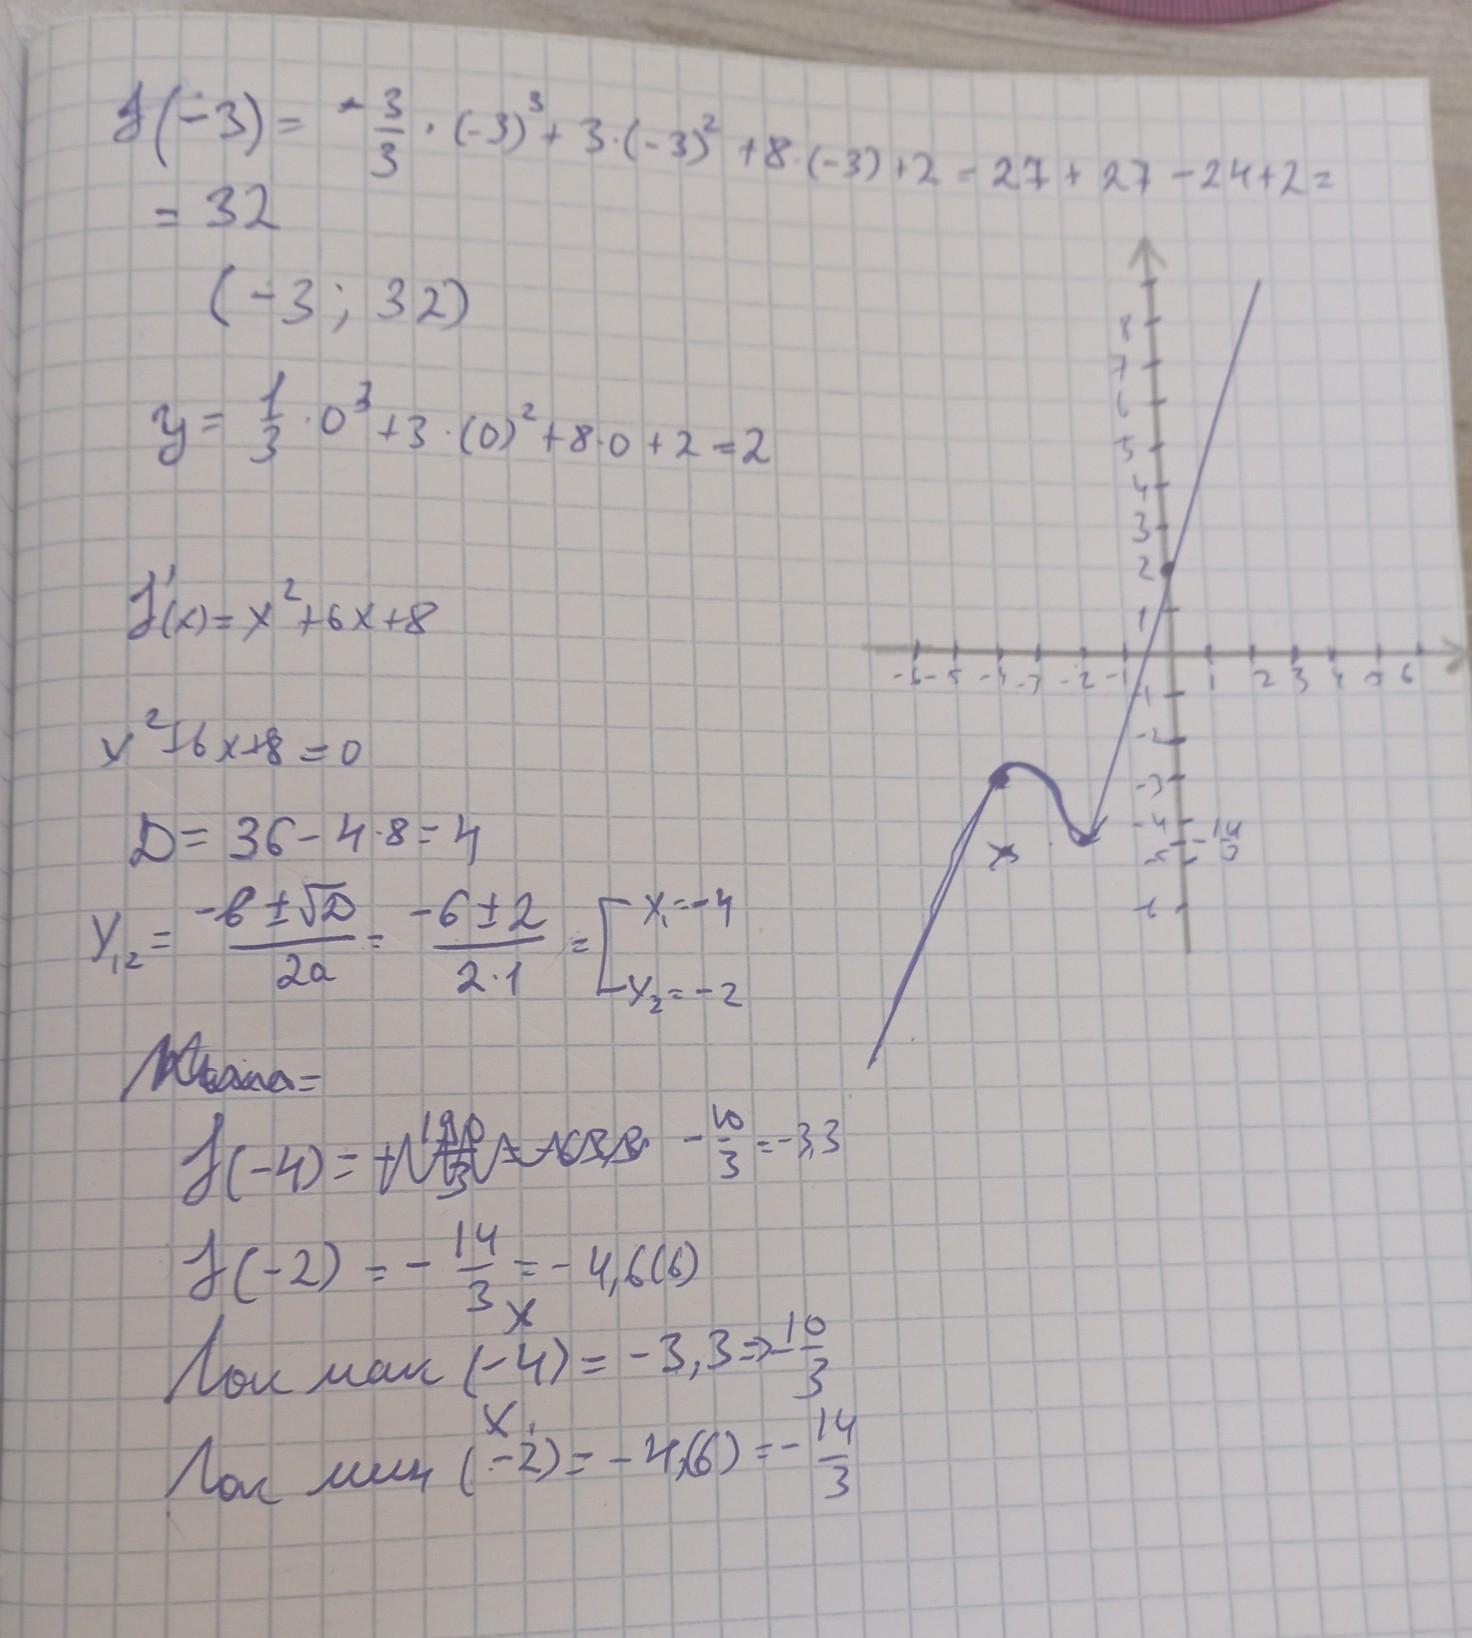 f(-3) = -3/3 · (-3)³ + 3·(-3)² + 8·(-3) + 2 = 27 + 27 - 24 + 2 =
= 32
(-3; 32)
y = 1/3 · 0³ + 3·(0)² + 8·0 + 2 = 2
f'(x) = x² + 6x + 8
x² + 6x + 8 = 0
D = 36 - 4·8 = 4
x₁₂ = (-b ± √D)/2a = (-6 ± 2)/(2·1) = [ x₁ = -4
x₂ = -2
f(-4) = -10/3 = -3,3
f(-2) = -14/3 = -4,6(6)
x
Лок мак (-4) = -3,3 => -10/3
x
Лок мин (-2) = -4,(6) = -14/3
8
7
6
5
4
3
2
1
-6 -5 -4 -3 -2 -1 1 2 3 4 5 6
-1
-2
-3
-4
-5 -14/3